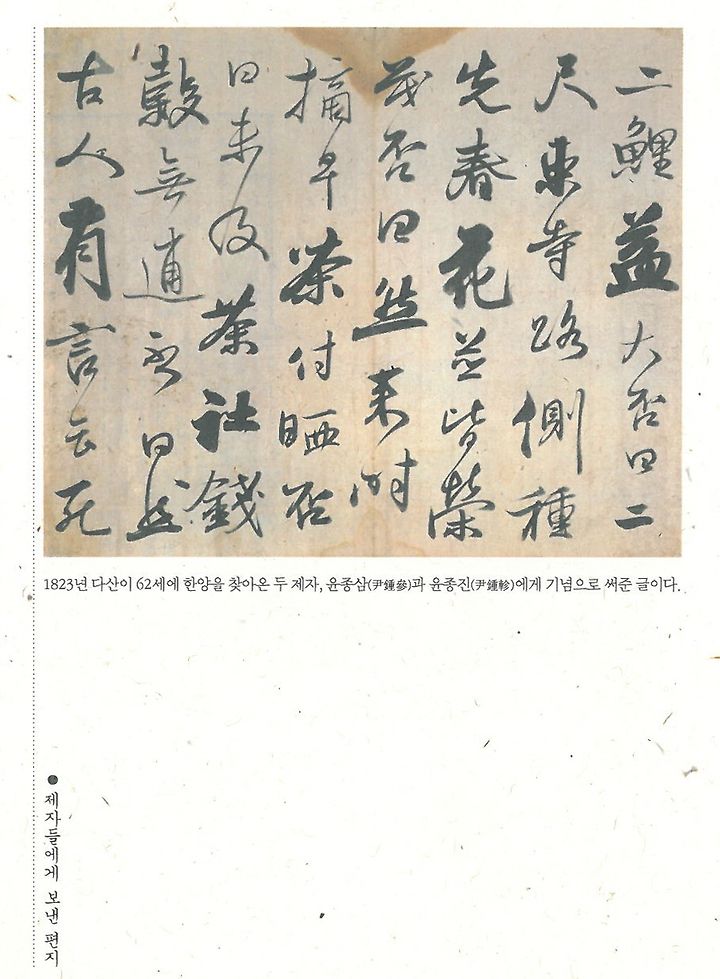 二鯉益大否曰二
尺東寺路側種
先春花並皆榮
茂否曰然來時
摘早茶付晒否
曰未及茶社錢
穀無逋否曰然
古人有言云死
1823년 다산이 62세에 한양을 찾아온 두 제자, 윤종삼(尹鍾參)과 윤종진(尹鍾軫)에게 기념으로 써준 글이다.
● 제자들에게 보낸 편지